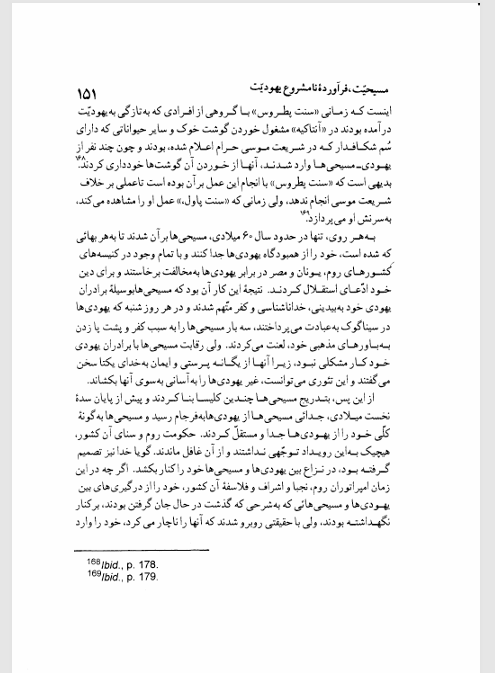 مسیحیّت، فرآوردهٔ نامشروع یهودیّت
۱۵۱
اینست که زمانی «سنت پطروس» با گروهی از افرادی که به تازگی به یهودیّت
درآمده بودند در «آنتاکیه» مشغول خوردن گوشت خوک و سایر حیواناتی که دارای
سُم شکافدار که در شریعت موسی حرام اعلام شده، بودند و چون چند نفر از
یهودی‌ـ مسیحی‌ها وارد شدند، آنها از خوردن آن گوشت‌ها خودداری کردند.۱۶۸
بدیهی است که «سنت پطروس» با انجام این عمل بر آن بوده است تا عملی بر خلاف
شریعت موسی انجام ندهد، ولی زمانی که «سنت پاول،» عمل او را مشاهده می‌کند،
به سرزنش او می‌پردازد.۱۶۹
به هر روی، تنها در حدود سال ۶۰ میلادی، مسیحی‌ها بر آن شدند تا به هر بهائی
که شده است، خود را از همبودگاه یهودی‌ها جدا کنند و با تمام وجود در کنیسه‌های
کشورهای روم، یونان و مصر در برابر یهودی‌ها به مخالفت برخاستند و برای دین
خود ادّعای استقلال کردند. نتیجهٔ این کار آن بود که مسیحی‌ها بوسیلهٔ برادران
یهودی خود به بیدینی، خداناشناسی و کفر متّهم شدند و در هر روز شنبه که یهودی‌ها
در سیناگوگ به عبادت می‌پرداختند، سه بار مسیحی‌ها را به سبب کفر و پشت پا زدن
به باورهای مذهبی خود، لعنت می‌کردند. ولی رقابت مسیحی‌ها با برادران یهودی
خود کار مشکلی نبود، زیرا آنها از یگانه پرستی و ایمان به خدای یکتا سخن
می‌گفتند و این تئوری می‌توانست، غیر یهودی‌ها را به آسانی به سوی آنها بکشاند.
از این پس، بتدریج مسیحی‌ها چندین کلیسا بنا کردند و پیش از پایان سدهٔ
نخست میلادی، جدائی مسیحی‌ها از یهودی‌ها به فرجام رسید و مسیحی‌ها به گونهٔ
کلّی خود را از یهودی‌ها جدا و مستقلّ کردند. حکومت روم و سنای آن کشور،
هیچیک به این رویداد توجّهی نداشتند و از آن غافل ماندند. گویا خدا نیز تصمیم
گرفته بود، در نزاع بین یهودی‌ها و مسیحی‌ها خود را کنار بکشد. اگر چه در این
زمان امپراتوران روم، نجبا و اشراف و فلاسفهٔ آن کشور، خود را از درگیری‌های بین
یهودی‌ها و مسیحی‌هائی که به شرحی که گذشت در حال جان گرفتن بودند، بر کنار
نگهداشته بودند، ولی با حقیقتی روبرو شدند که آنها را ناچار می‌کرد، خود را وارد
168 Ibid., p. 178.
169 Ibid., p. 179.